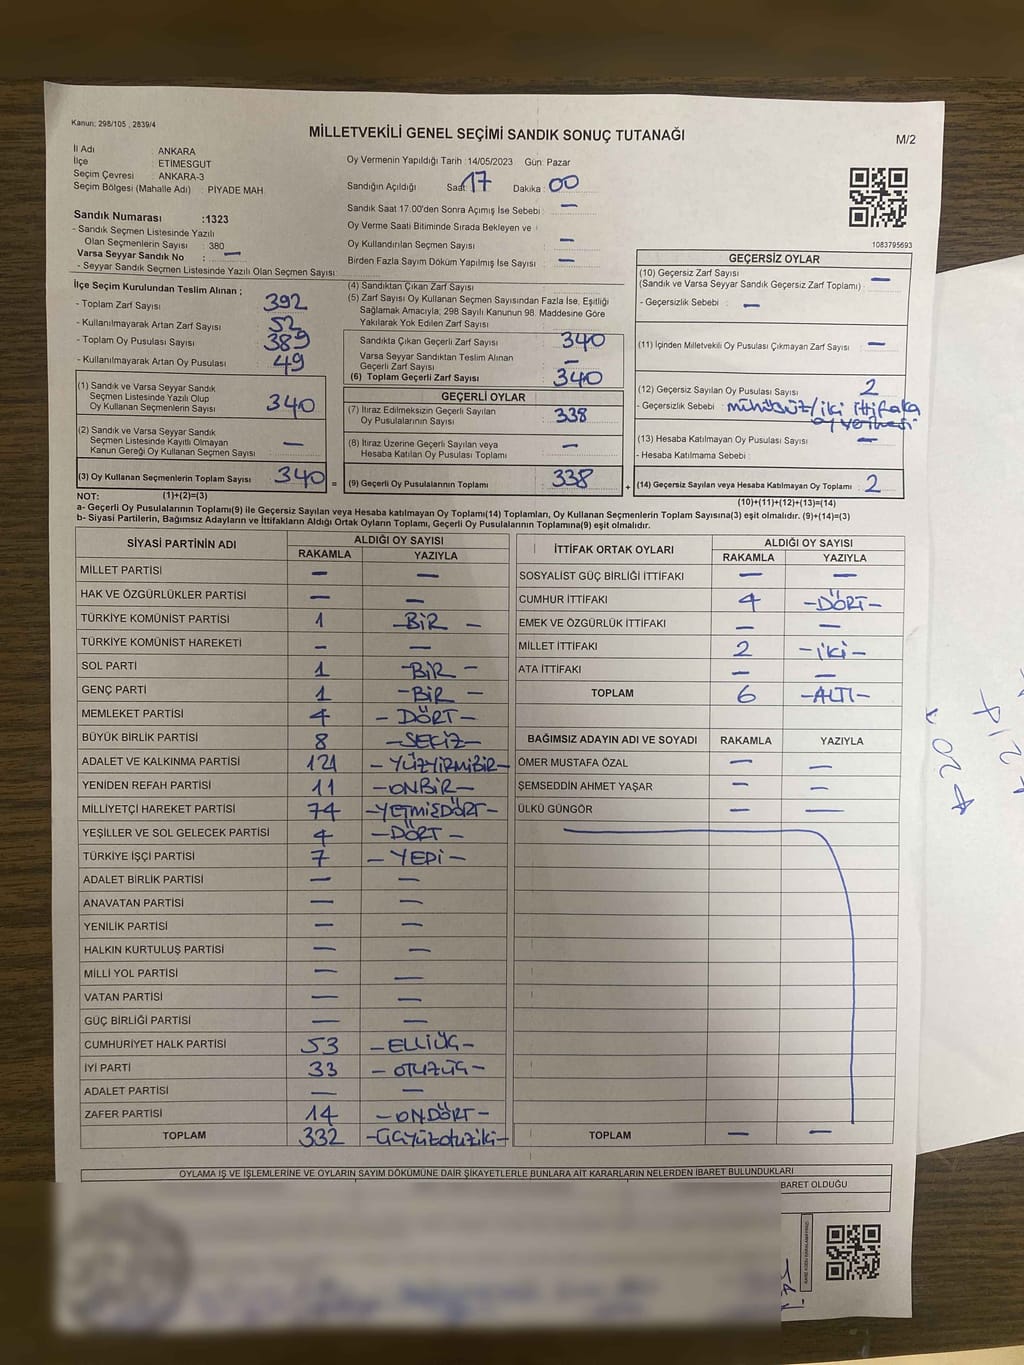 Kanun: 298/105 , 2839/4
MİLLETVEKİLİ GENEL SEÇİMİ SANDIK SONUÇ TUTANAĞI
M/2
İl Adı : ANKARA
İlçe : ETİMESGUT
Seçim Çevresi : ANKARA-3
Seçim Bölgesi (Mahalle Adı) : PİYADE MAH.
Oy Vermenin Yapıldığı Tarih :14/05/2023 Gün: Pazar
Sandığın Açıldığı Saat: 17 Dakika : 00
Sandık Saat 17:00'den Sonra Açılmış İse Sebebi : —
Oy Verme Saati Bitiminde Sırada Bekleyen ve
Oy Kullandırılan Seçmen Sayısı : —
Birden Fazla Sayım Döküm Yapılmış İse Sayısı : —
1083795693
Sandık Numarası :1323
- Sandık Seçmen Listesinde Yazılı
Olan Seçmenlerin Sayısı : 380
Varsa Seyyar Sandık No : —
- Seyyar Sandık Seçmen Listesinde Yazılı Olan Seçmen Sayısı :
İlçe Seçim Kurulundan Teslim Alınan ;
- Toplam Zarf Sayısı : 392
- Kullanılmayarak Artan Zarf Sayısı : 52
- Toplam Oy Pusulası Sayısı : 389
- Kullanılmayarak Artan Oy Pusulası : 49
(1) Sandık ve Varsa Seyyar Sandık
Seçmen Listesinde Yazılı Olup
Oy Kullanan Seçmenlerin Sayısı : 340
(2) Sandık ve Varsa Seyyar Sandık
Seçmen Listesinde Kayıtlı Olmayan
Kanun Gereği Oy Kullanan Seçmen Sayısı : —
(3) Oy Kullanan Seçmenlerin Toplam Sayısı : 340 =
(4) Sandıktan Çıkan Zarf Sayısı :
(5) Zarf Sayısı Oy Kullanan Seçmen Sayısından Fazla İse, Eşitliği
Sağlamak Amacıyla; 298 Sayılı Kanunun 98. Maddesine Göre
Yakılarak Yok Edilen Zarf Sayısı :
Sandıkta Çıkan Geçerli Zarf Sayısı : 340
Varsa Seyyar Sandıktan Teslim Alınan
Geçerli Zarf Sayısı : —
(6) Toplam Geçerli Zarf Sayısı : 340
GEÇERLİ OYLAR
(7) İtiraz Edilmeksizin Geçerli Sayılan
Oy Pusulalarının Sayısı : 338
(8) İtiraz Üzerine Geçerli Sayılan veya
Hesaba Katılan Oy Pusulası Toplamı : —
(9) Geçerli Oy Pusulalarının Toplamı : 338 +
GEÇERSİZ OYLAR
(10) Geçersiz Zarf Sayısı
(Sandık ve Varsa Seyyar Sandık Geçersiz Zarf Toplamı) : —
- Geçersizlik Sebebi : —
(11) İçinden Milletvekili Oy Pusulası Çıkmayan Zarf Sayısı : —
(12) Geçersiz Sayılan Oy Pusulası Sayısı : 2
- Geçersizlik Sebebi : mühürsüz/iki ittifaka
oy verilmesi
(13) Hesaba Katılmayan Oy Pusulası Sayısı : —
- Hesaba Katılmama Sebebi :
(14) Geçersiz Sayılan veya Hesaba Katılmayan Oy Toplamı : 2
NOT: (1)+(2)=(3)
(10)+(11)+(12)+(13)=(14)
a- Geçerli Oy Pusulalarının Toplamı(9) ile Geçersiz Sayılan veya Hesaba Katılmayan Oy Toplamı(14) Toplamları, Oy Kullanan Seçmenlerin Toplam Sayısına(3) eşit olmalıdır. (9)+(14)=(3)
b- Siyasi Partilerin, Bağımsız Adayların ve İttifakların Aldığı Ortak Oyların Toplamı, Geçerli Oy Pusulalarının Toplamına(9) eşit olmalıdır.
SİYASİ PARTİNİN ADI ALDIĞI OY SAYISI
RAKAMLA YAZIYLA
MİLLET PARTİSİ — —
HAK VE ÖZGÜRLÜKLER PARTİSİ — —
TÜRKİYE KOMÜNİST PARTİSİ 1 —BİR —
TÜRKİYE KOMÜNİST HAREKETİ — —
SOL PARTİ 1 —BİR —
GENÇ PARTİ 1 —BİR —
MEMLEKET PARTİSİ 4 — DÖRT—
BÜYÜK BİRLİK PARTİSİ 8 —SEKİZ—
ADALET VE KALKINMA PARTİSİ 121 — YÜZYİRMİBİR—
YENİDEN REFAH PARTİSİ 11 —ONBİR—
MİLLİYETÇİ HAREKET PARTİSİ 74 —YETMİŞDÖRT—
YEŞİLLER VE SOL GELECEK PARTİSİ 4 —DÖRT —
TÜRKİYE İŞÇİ PARTİSİ 7 — YEDİ—
ADALET BİRLİK PARTİSİ — —
ANAVATAN PARTİSİ — —
YENİLİK PARTİSİ — —
HALKIN KURTULUŞ PARTİSİ — —
MİLLİ YOL PARTİSİ — —
VATAN PARTİSİ — —
GÜÇ BİRLİĞİ PARTİSİ — —
CUMHURİYET HALK PARTİSİ 53 —ELLİÜÇ—
İYİ PARTİ 33 — OTUZÜÇ—
ADALET PARTİSİ — —
ZAFER PARTİSİ 14 —ONDÖRT—
TOPLAM 332 —üçyüzotuziki—
İTTİFAK ORTAK OYLARI ALDIĞI OY SAYISI
RAKAMLA YAZIYLA
SOSYALİST GÜÇ BİRLİĞİ İTTİFAKI — —
CUMHUR İTTİFAKI 4 —DÖRT—
EMEK VE ÖZGÜRLÜK İTTİFAKI — —
MİLLET İTTİFAKI 2 —iki—
ATA İTTİFAKI — —
TOPLAM 6 —ALTI—
BAĞIMSIZ ADAYIN ADI VE SOYADI RAKAMLA YAZIYLA
ÖMER MUSTAFA ÖZAL — —
ŞEMSEDDİN AHMET YAŞAR — —
ÜLKÜ GÜNGÖR — —
TOPLAM — —
OYLAMA İŞ VE İŞLEMLERİNE VE OYLARIN SAYIM DÖKÜMÜNE DAİR ŞİKAYETLERLE BUNLARA AİT KARARLARIN NELERDEN İBARET BULUNDUKLARI
BARET OLDUĞU